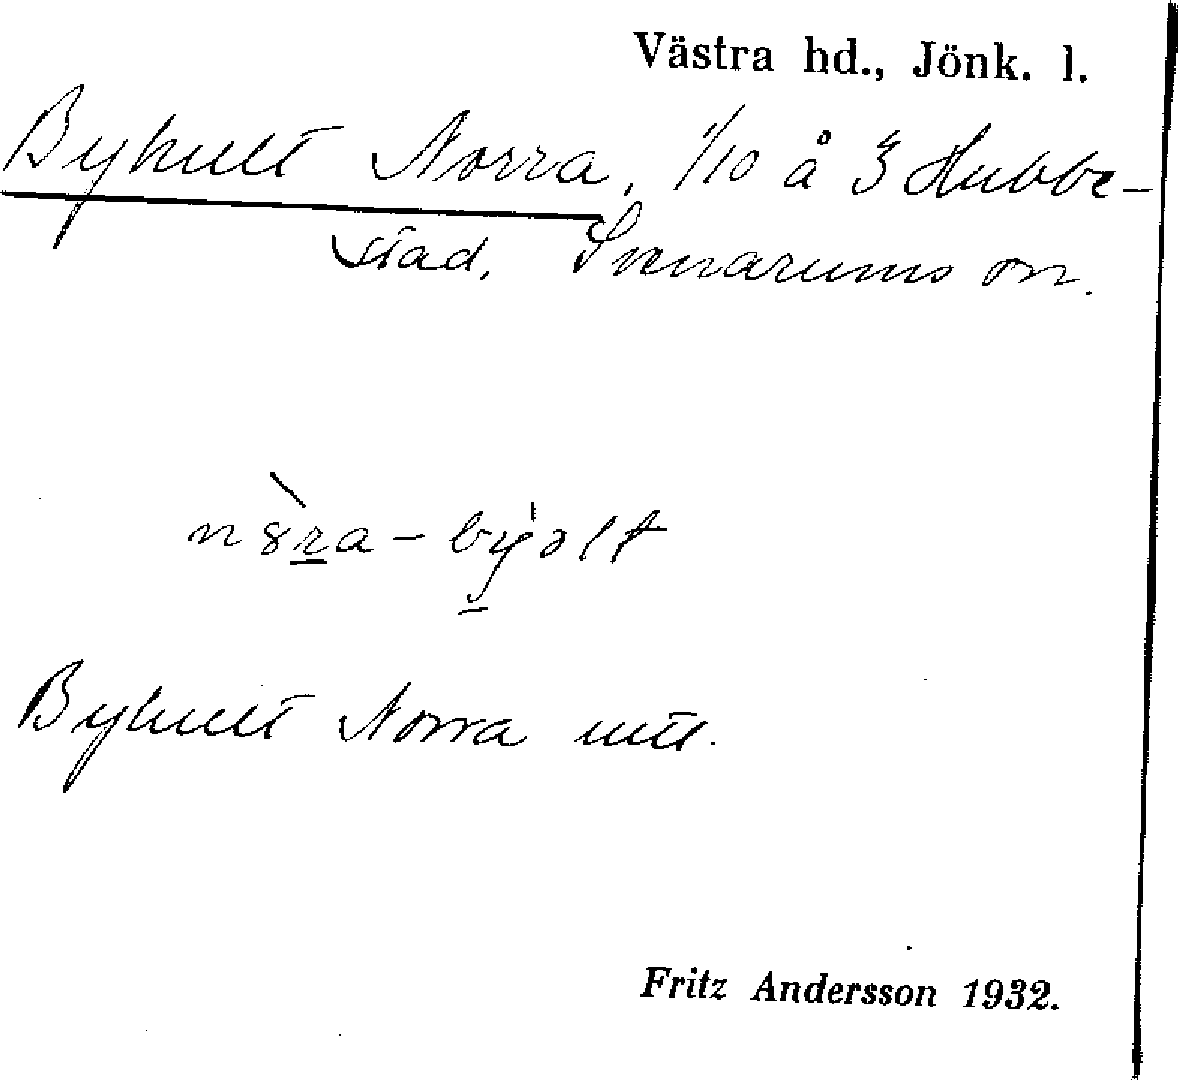 Västra hd., Jönk. l.
Byhult Norra, 1/10 å 3 Hubbe-
stad, Svenarums sn.
n8ra-byolt
Byhult Norra utt.
Fritz Andersson 1932.